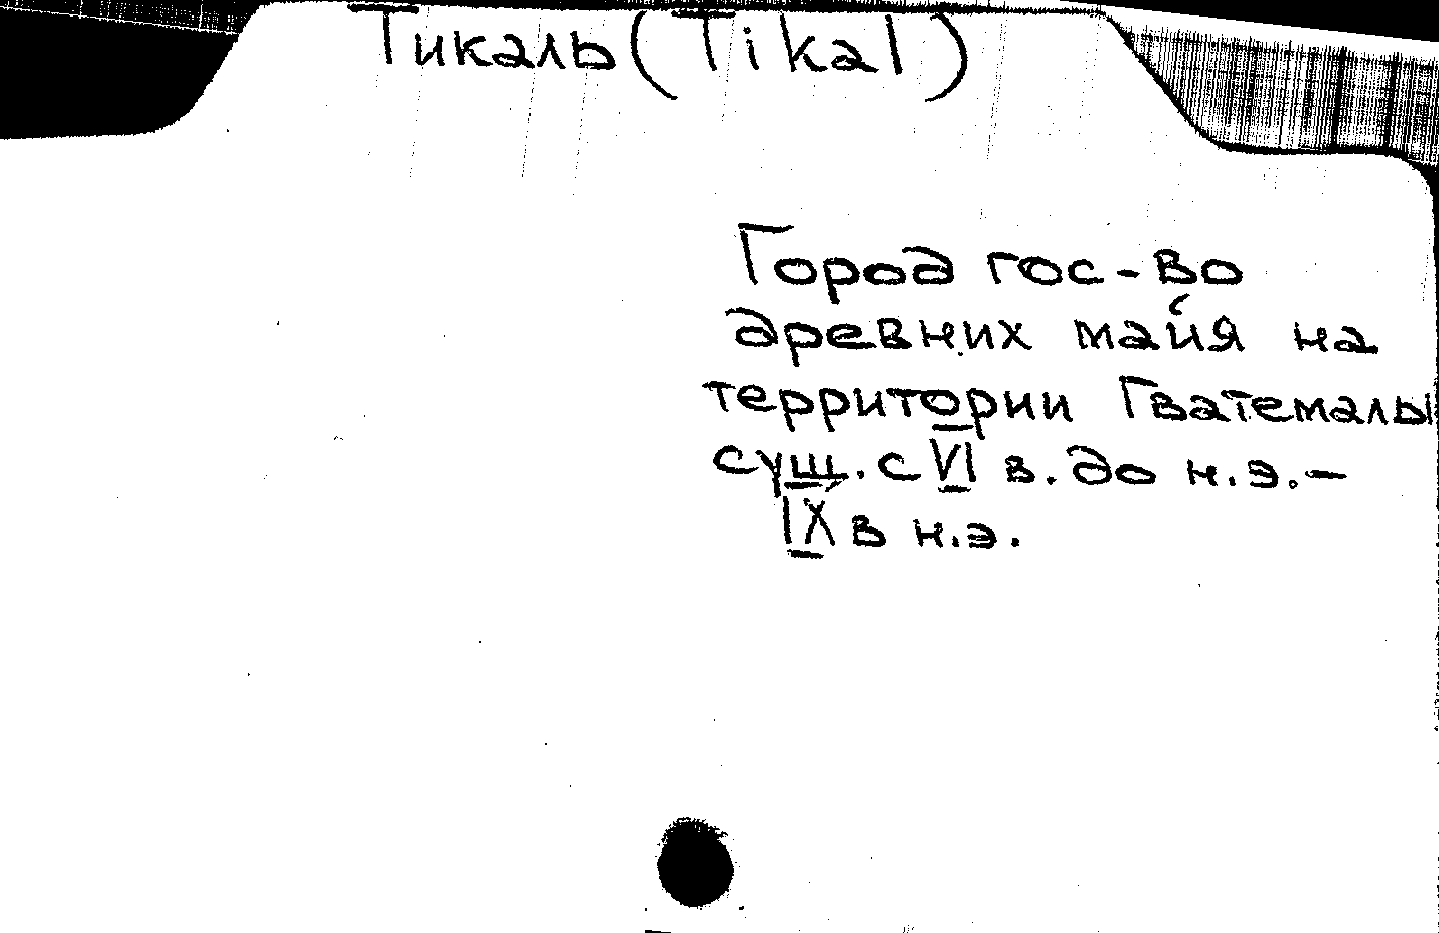 Тикаль (Tikal)
Город гос-во
древних майя на
территории Гватемалы
сущ. с VI в. до н.э. –
IX в н.э.